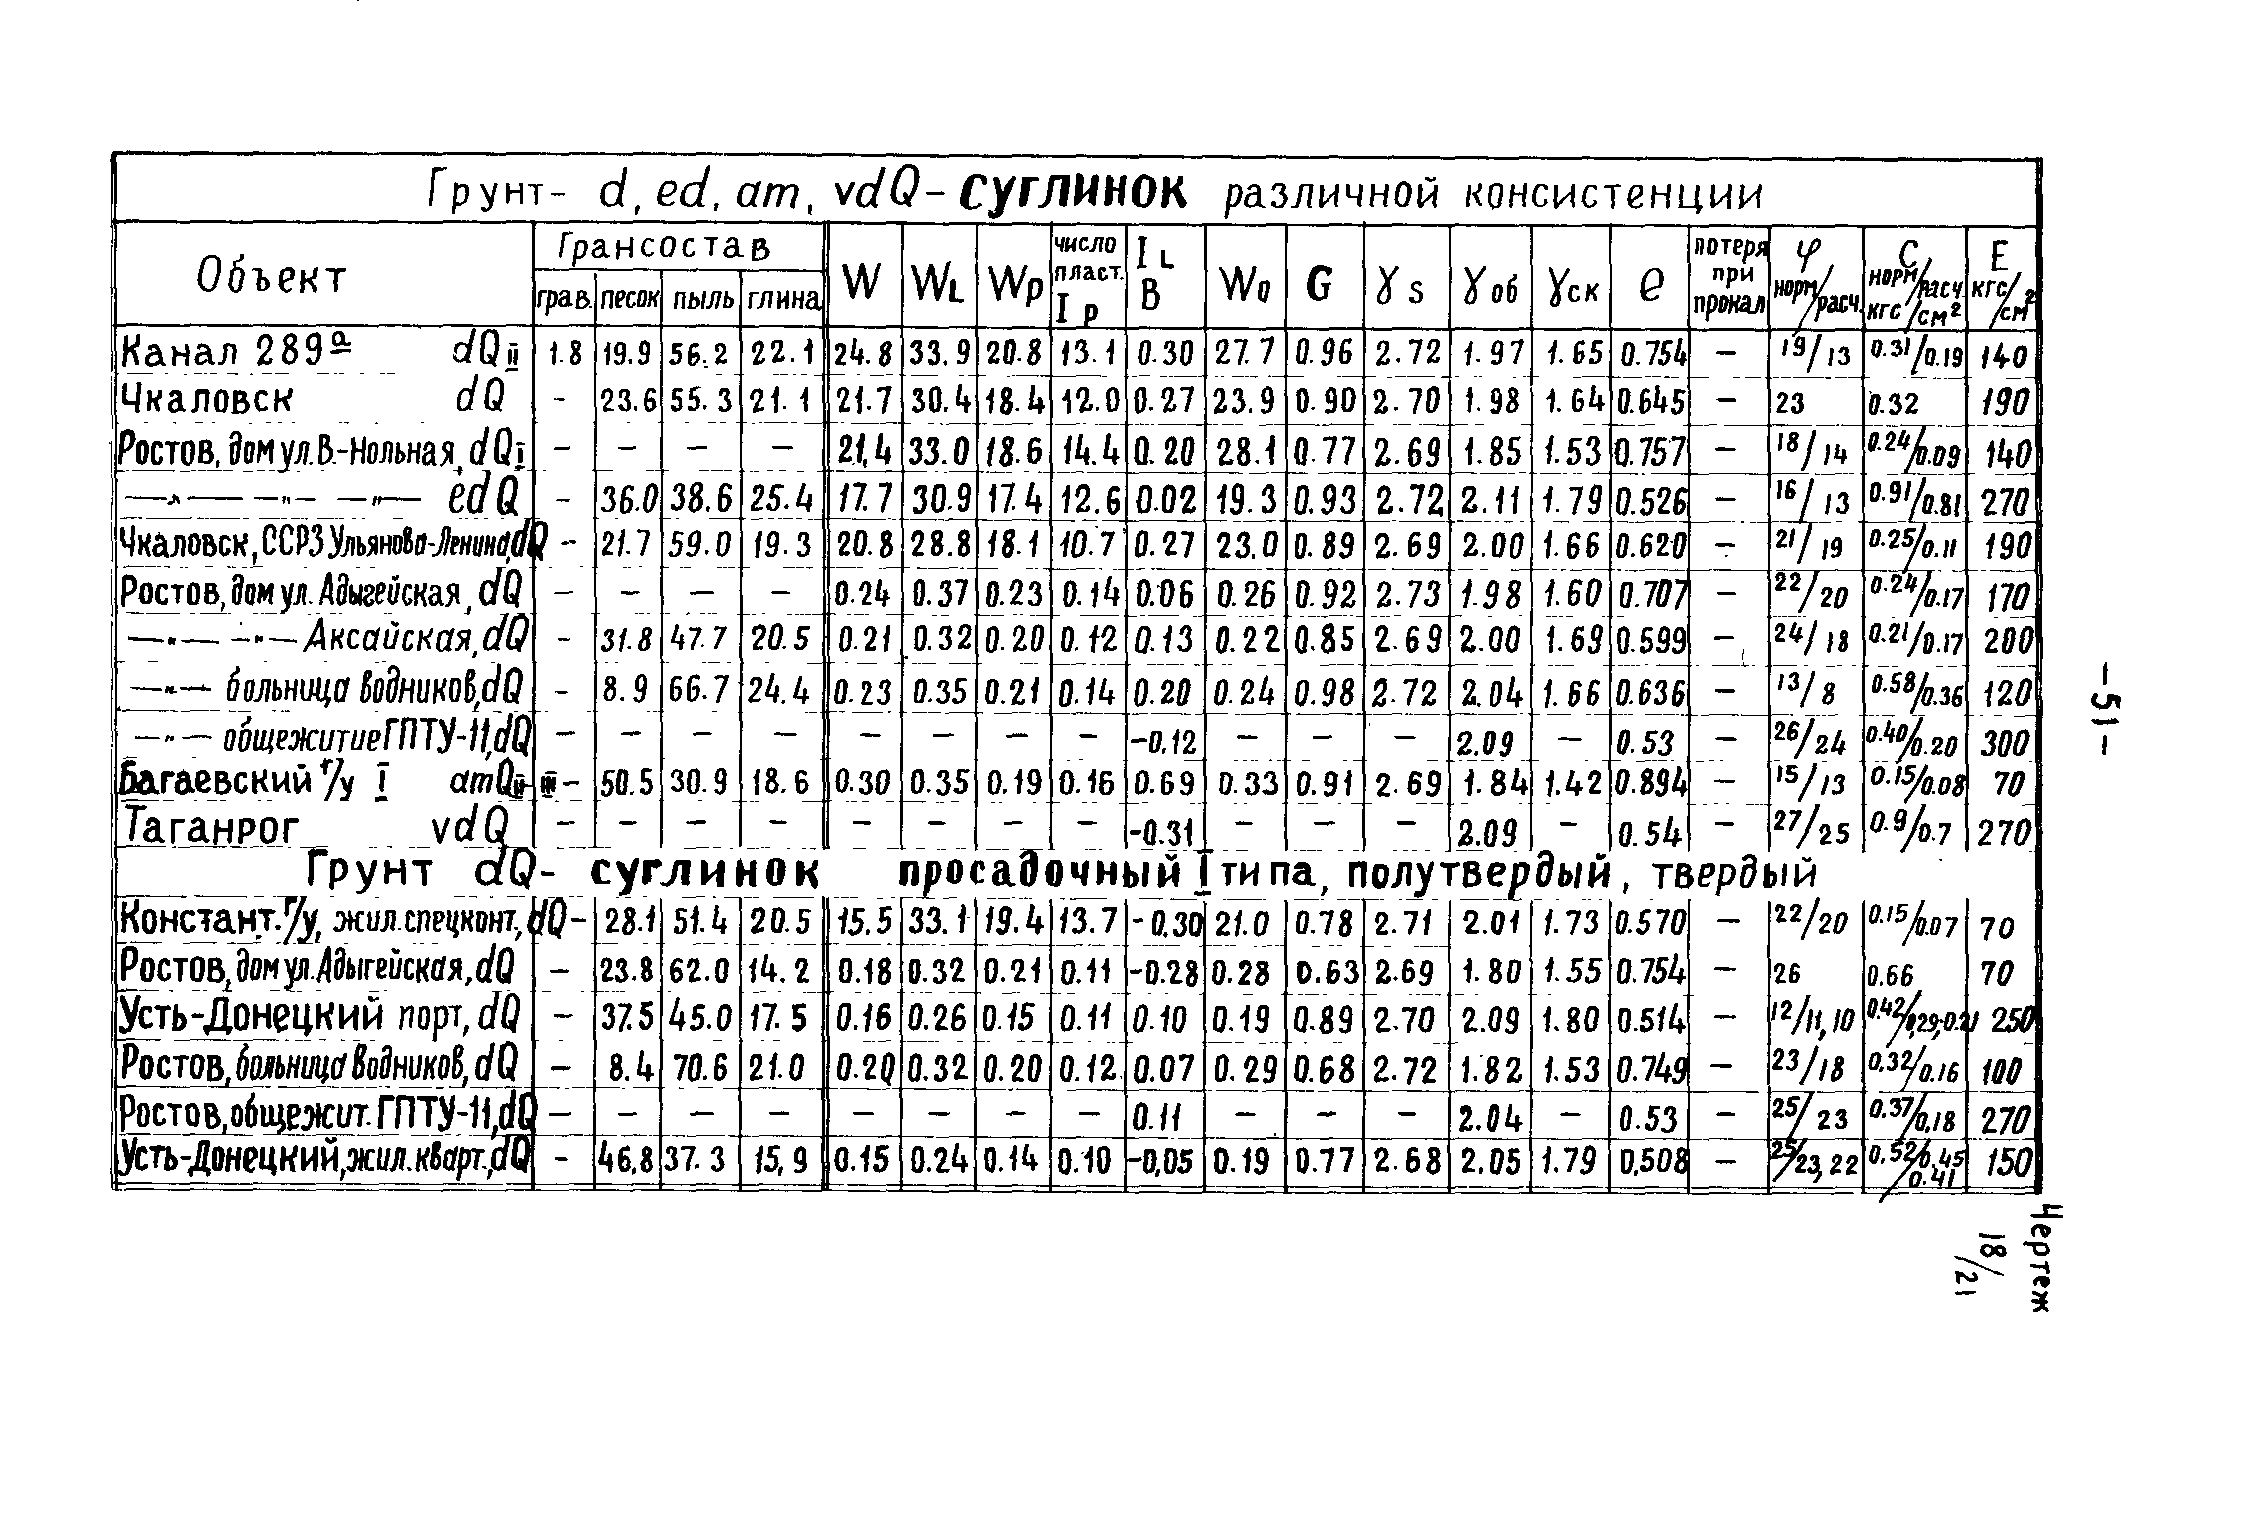 Грунт- d, ed, am, vdQ - суглинок различной консистенции
Объект Грансостав W WL Wp число пласт. Ip IL B W0 G γs γоб γск e потеря при прокал φ норм/расч. C норм/расч кгс/см² E кгс/см²
грав. песок пыль глина
Канал 289а dQII 1.8 19.9 56.2 22.1 24.8 33.9 20.8 13.1 0.30 27.7 0.96 2.72 1.97 1.65 0.754 – 19/13 0.31/0.19 140
Чкаловск dQ - 23.6 55.3 21.1 21.7 30.4 18.4 12.0 0.27 23.9 0.90 2.70 1.98 1.64 0.645 – 23 0.32 190
Ростов, дом ул. В.-Нольная, dQI – – – – 21,4 33.0 18.6 14.4 0.20 28.1 0.77 2.69 1.85 1.53 0.757 – 18/14 0.24/0.09 140
—"— —"— —"— edQ - 36.0 38.6 25.4 17.7 30.9 17.4 12.6 0.02 19.3 0.93 2.72 2.11 1.79 0.526 – 16/13 0.91/0.81 270
Чкаловск, ССРЗ Ульянова-Ленина, dQ - 21.7 59.0 19.3 20.8 28.8 18.1 10.7 0.27 23.0 0.89 2.69 2.00 1.66 0.620 – 21/19 0.25/0.11 190
Ростов, дом ул. Адыгейская, dQ – – – – 0.24 0.37 0.23 0.14 0.06 0.26 0.92 2.73 1.98 1.60 0.707 – 22/20 0.24/0.17 170
—"— —"— Аксайская, dQ - 31.8 47.7 20.5 0.21 0.32 0.20 0.12 0.13 0.22 0.85 2.69 2.00 1.69 0.599 – 24/18 0.21/0.17 200
—"— больница водников, dQ - 8.9 66.7 24.4 0.23 0.35 0.21 0.14 0.20 0.24 0.98 2.72 2.04 1.66 0.636 – 13/8 0.58/0.36 120
—"— общежитие ГПТУ-11, dQ – – – – – – – – -0.12 – – – 2.09 – 0.53 – 26/24 0.40/0.20 300
Багаевский г/у I amQII-III - 50.5 30.9 18.6 0.30 0.35 0.19 0.16 0.69 0.33 0.91 2.69 1.84 1.42 0.894 – 15/13 0.15/0.08 70
Таганрог vdQ – – – – – – – – -0.31 – – – 2.09 – 0.54 – 27/25 0.9/0.7 270
Грунт dQ - суглинок просадочный I типа, полутвердый, твердый
Констант. г/у, жил. спецконт., dQ - 28.1 51.4 20.5 15.5 33.1 19.4 13.7 -0.30 21.0 0.78 2.71 2.01 1.73 0.570 – 22/20 0.15/0.07 70
Ростов, дом ул. Адыгейская, dQ – 23.8 62.0 14.2 0.18 0.32 0.21 0.11 -0.28 0.28 0.63 2.69 1.80 1.55 0.754 – 26 0.66 70
Усть-Донецкий порт, dQ – 37.5 45.0 17.5 0.16 0.26 0.15 0.11 0.10 0.19 0.89 2.70 2.09 1.80 0.514 – 12/11,10 0.42/0,29;0.21 250
Ростов, больница водников, dQ – 8.4 70.6 21.0 0.20 0.32 0.20 0.12 0.07 0.29 0.68 2.72 1.82 1.53 0.749 – 23/18 0.32/0.16 100
Ростов, общежит. ГПТУ-11, dQ – – – – – – – – 0.11 – – – 2.04 – 0.53 – 25/23 0.37/0,18 270
Усть-Донецкий, жил. кварт., dQ - 46,8 37.3 15,9 0.15 0.24 0.14 0.10 -0,05 0.19 0.77 2.68 2,05 1.79 0,508 – 25/23,22 0.52/0,45/0.41 150
- 51 -
Чертеж
18/21